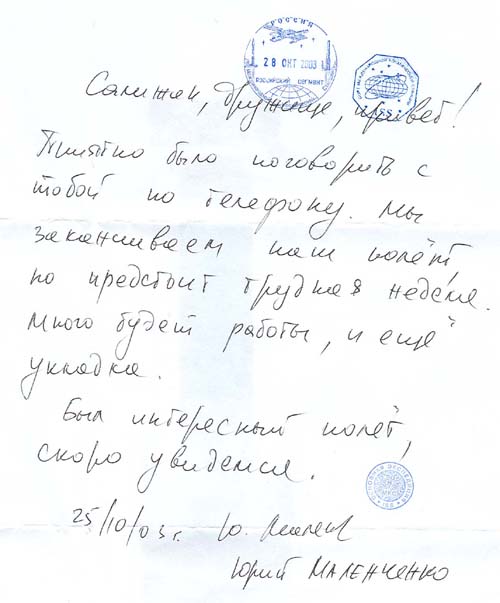 РОССИЯ
28 ОКТ 2003
РОССИЙСКИЙ СЕГМЕНТ
ISS
Салижан, дружище, привет!
Приятно было поговорить с
тобой по телефону. Мы
заканчиваем наш полёт,
но предстоит трудная неделя.
Много будет работы, и ещё
укладка.
Был интересный полёт,
скоро увидемся.
25/10/03 г.
Юрий Маленченко